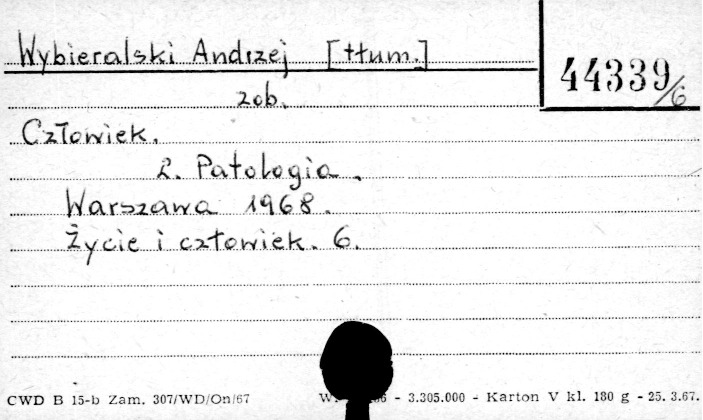 Wybieralski Andrzej [tłum.]
44339/6
zob.
Człowiek.
2. Patologia.
Warszawa 1968.
Życie i człowiek. 6.
CWD B 15-b Zam. 307/WD/On/67 - 3.305.000 - Karton V kl. 180 g - 25. 3.67.